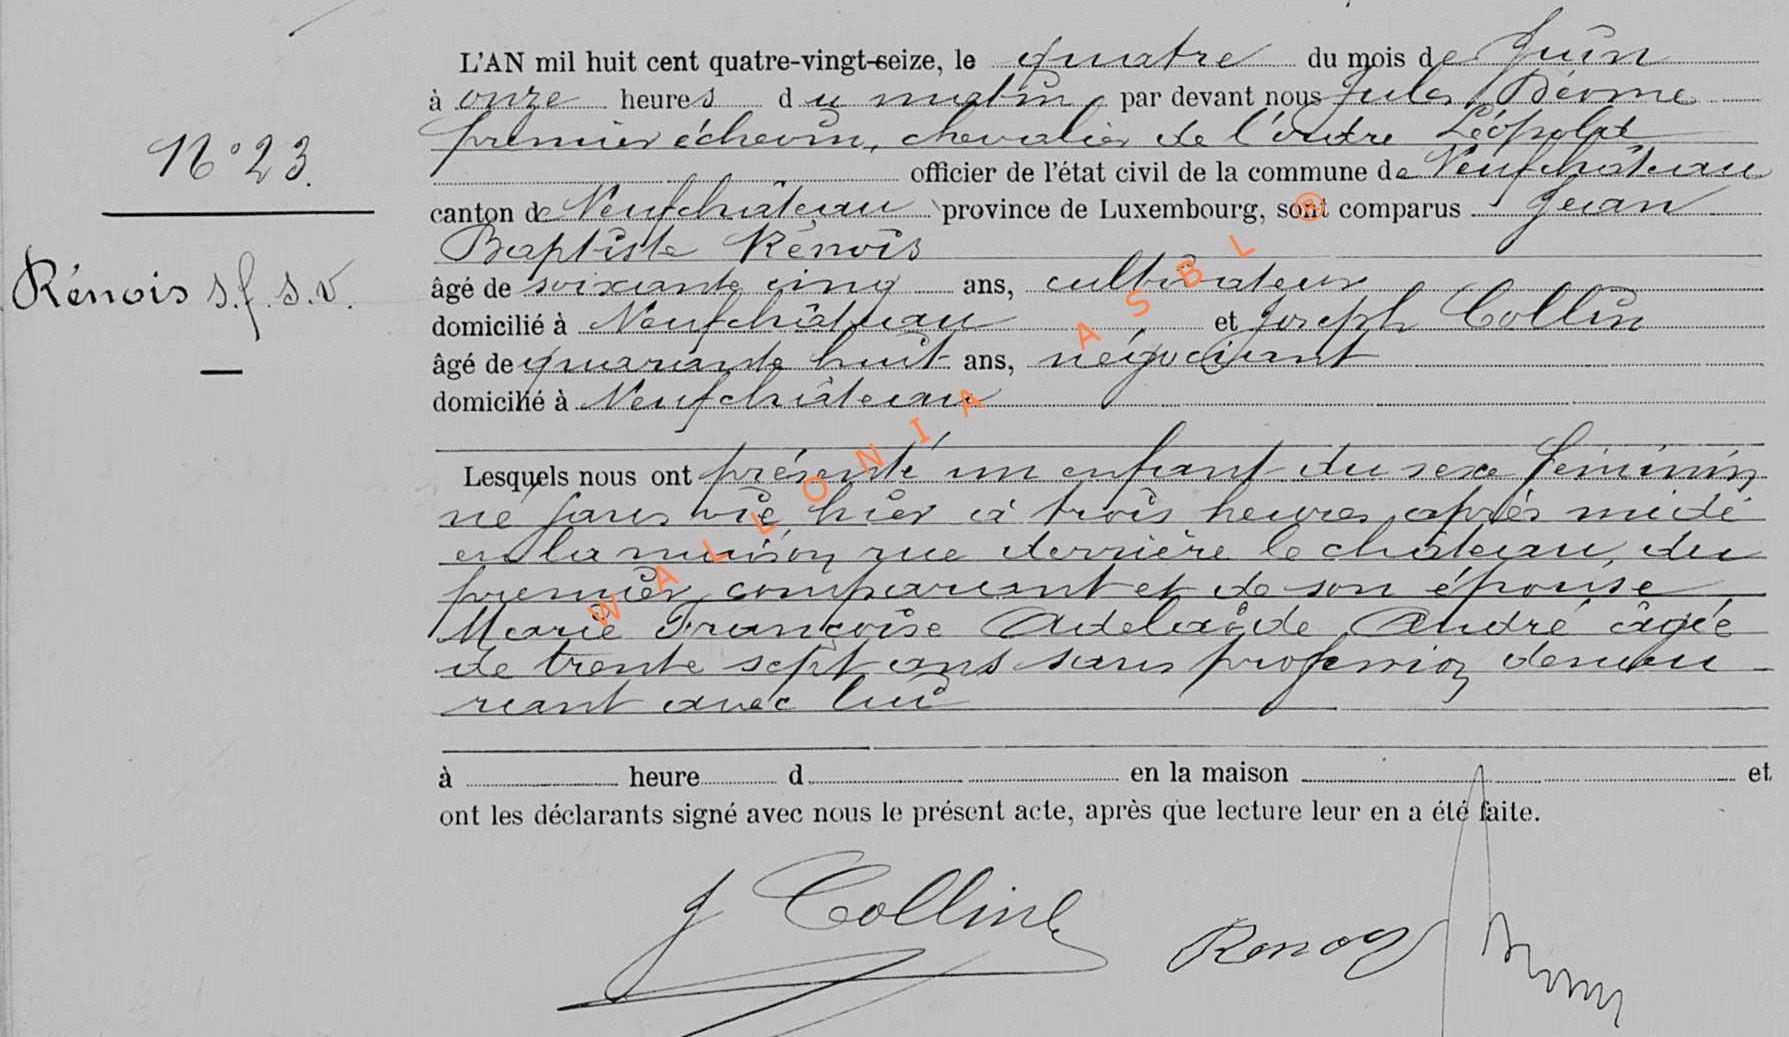 L'AN mil huit cent quatre-vingt-seize, le quatre du mois de Juin
à onze heures du matin, par devant nous Jules Bérome
premier échevin, chevalier de l'ordre Léopold
N° 23.
officier de l'état civil de la commune de Neufchâteau
canton de Neufchâteau province de Luxembourg, sont comparus Jean
Baptiste Rénois
Rénois s.f. s.v.
âgé de soixante cinq ans, cultivateur
domicilié à Neufchâteau et Joseph Collin
âgé de quarante huit ans, négociant
domicilié à Neufchâteau
Lesquels nous ont présenté un enfant du sexe féminin
né sans vie hier à trois heures après midi
en la maison rue derrière le château, du
premier comparant et de son épouse
Marie Françoise Adelaïde André âgée
de trente sept ans sans profession demeu
rant avec lui
à heure d en la maison et
ont les déclarants signé avec nous le présent acte, après que lecture leur en a été faite.
J Collin
Renoy
WALLONIA ASBL ®